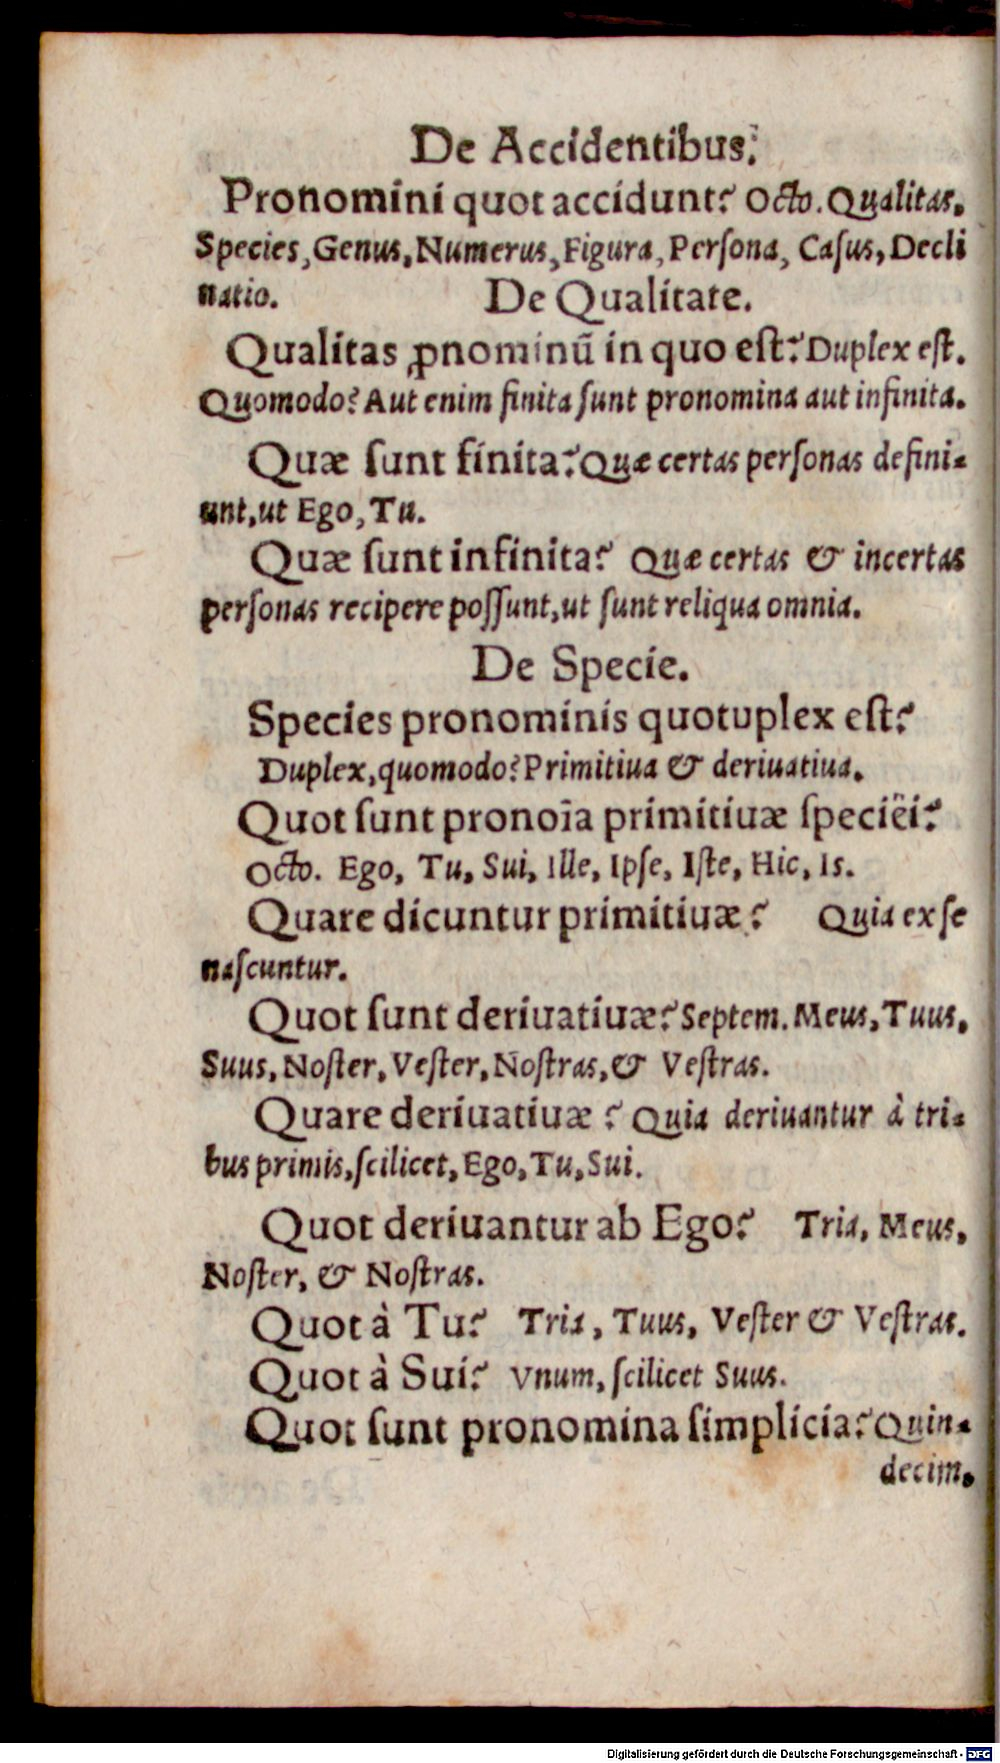 De Accidentibus.
Pronomini quot accidunt? Octo. Qualitas,
Species, Genus, Numerus, Figura, Perſona, Caſus, Decli
natio. De Qualitate.
Qualitas ꝓnominū in quo eſt? Duplex eſt.
Quomodo? Aut enim finita ſunt pronomina aut infinita.
Quæ ſunt finita? Quæ certas perſonas defini-
unt, ut Ego, Tu.
Quæ ſunt infinita? Quæ certas & incertas
perſonas recipere poſſunt, ut ſunt reliqua omnia.
De Specie.
Species pronominis quotuplex eſt?
Duplex, quomodo? Primitiua & deriuatiua.
Quot ſunt pronoīa primitiuæ ſpeciēi?
Octo. Ego, Tu, Sui, Ille, Ipſe, Iſte, Hic, Is.
Quare dicuntur primitiuæ? Quia ex ſe
naſcuntur.
Quot ſunt deriuatiuæ? Septem. Meus, Tuus,
Suus, Noſter, Veſter, Noſtras, & Veſtras.
Quare deriuatiuæ? Quia deriuantur à tri-
bus primis, ſcilicet, Ego, Tu, Sui.
Quot deriuantur ab Ego? Tria, Meus,
Noſter, & Noſtras.
Quot à Tu? Tria, Tuus, Veſter & Veſtras.
Quot à Sui? Vnum, ſcilicet Suus.
Quot ſunt pronomina ſimplicia? Quin-
decim.
Digitalisierung gefördert durch die Deutsche Forschungsgemeinschaft - DFG